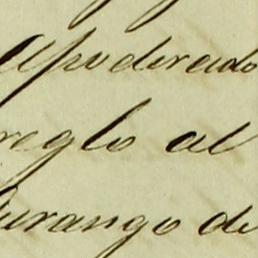 Apoderado
reglo al
Durango de